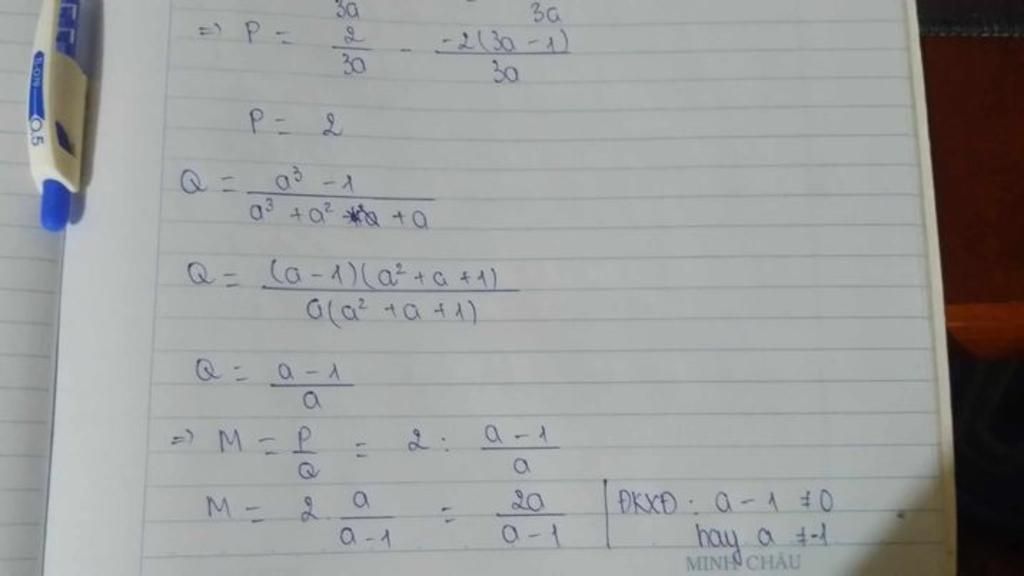 3a 3a
=> P = 2/3a - -2(3a - 1)/3a
P = 2
Q = a³ - 1 / a³ + a² + a
Q = (a - 1)(a² + a + 1) / a(a² + a + 1)
Q = a - 1 / a
=> M = P/Q = 2 : a - 1 / a
M = 2 a / a - 1 = 2a / a - 1 | ĐKXĐ : a - 1 ≠ 0
hay a ≠ -1
MINH CHÂU
0.5